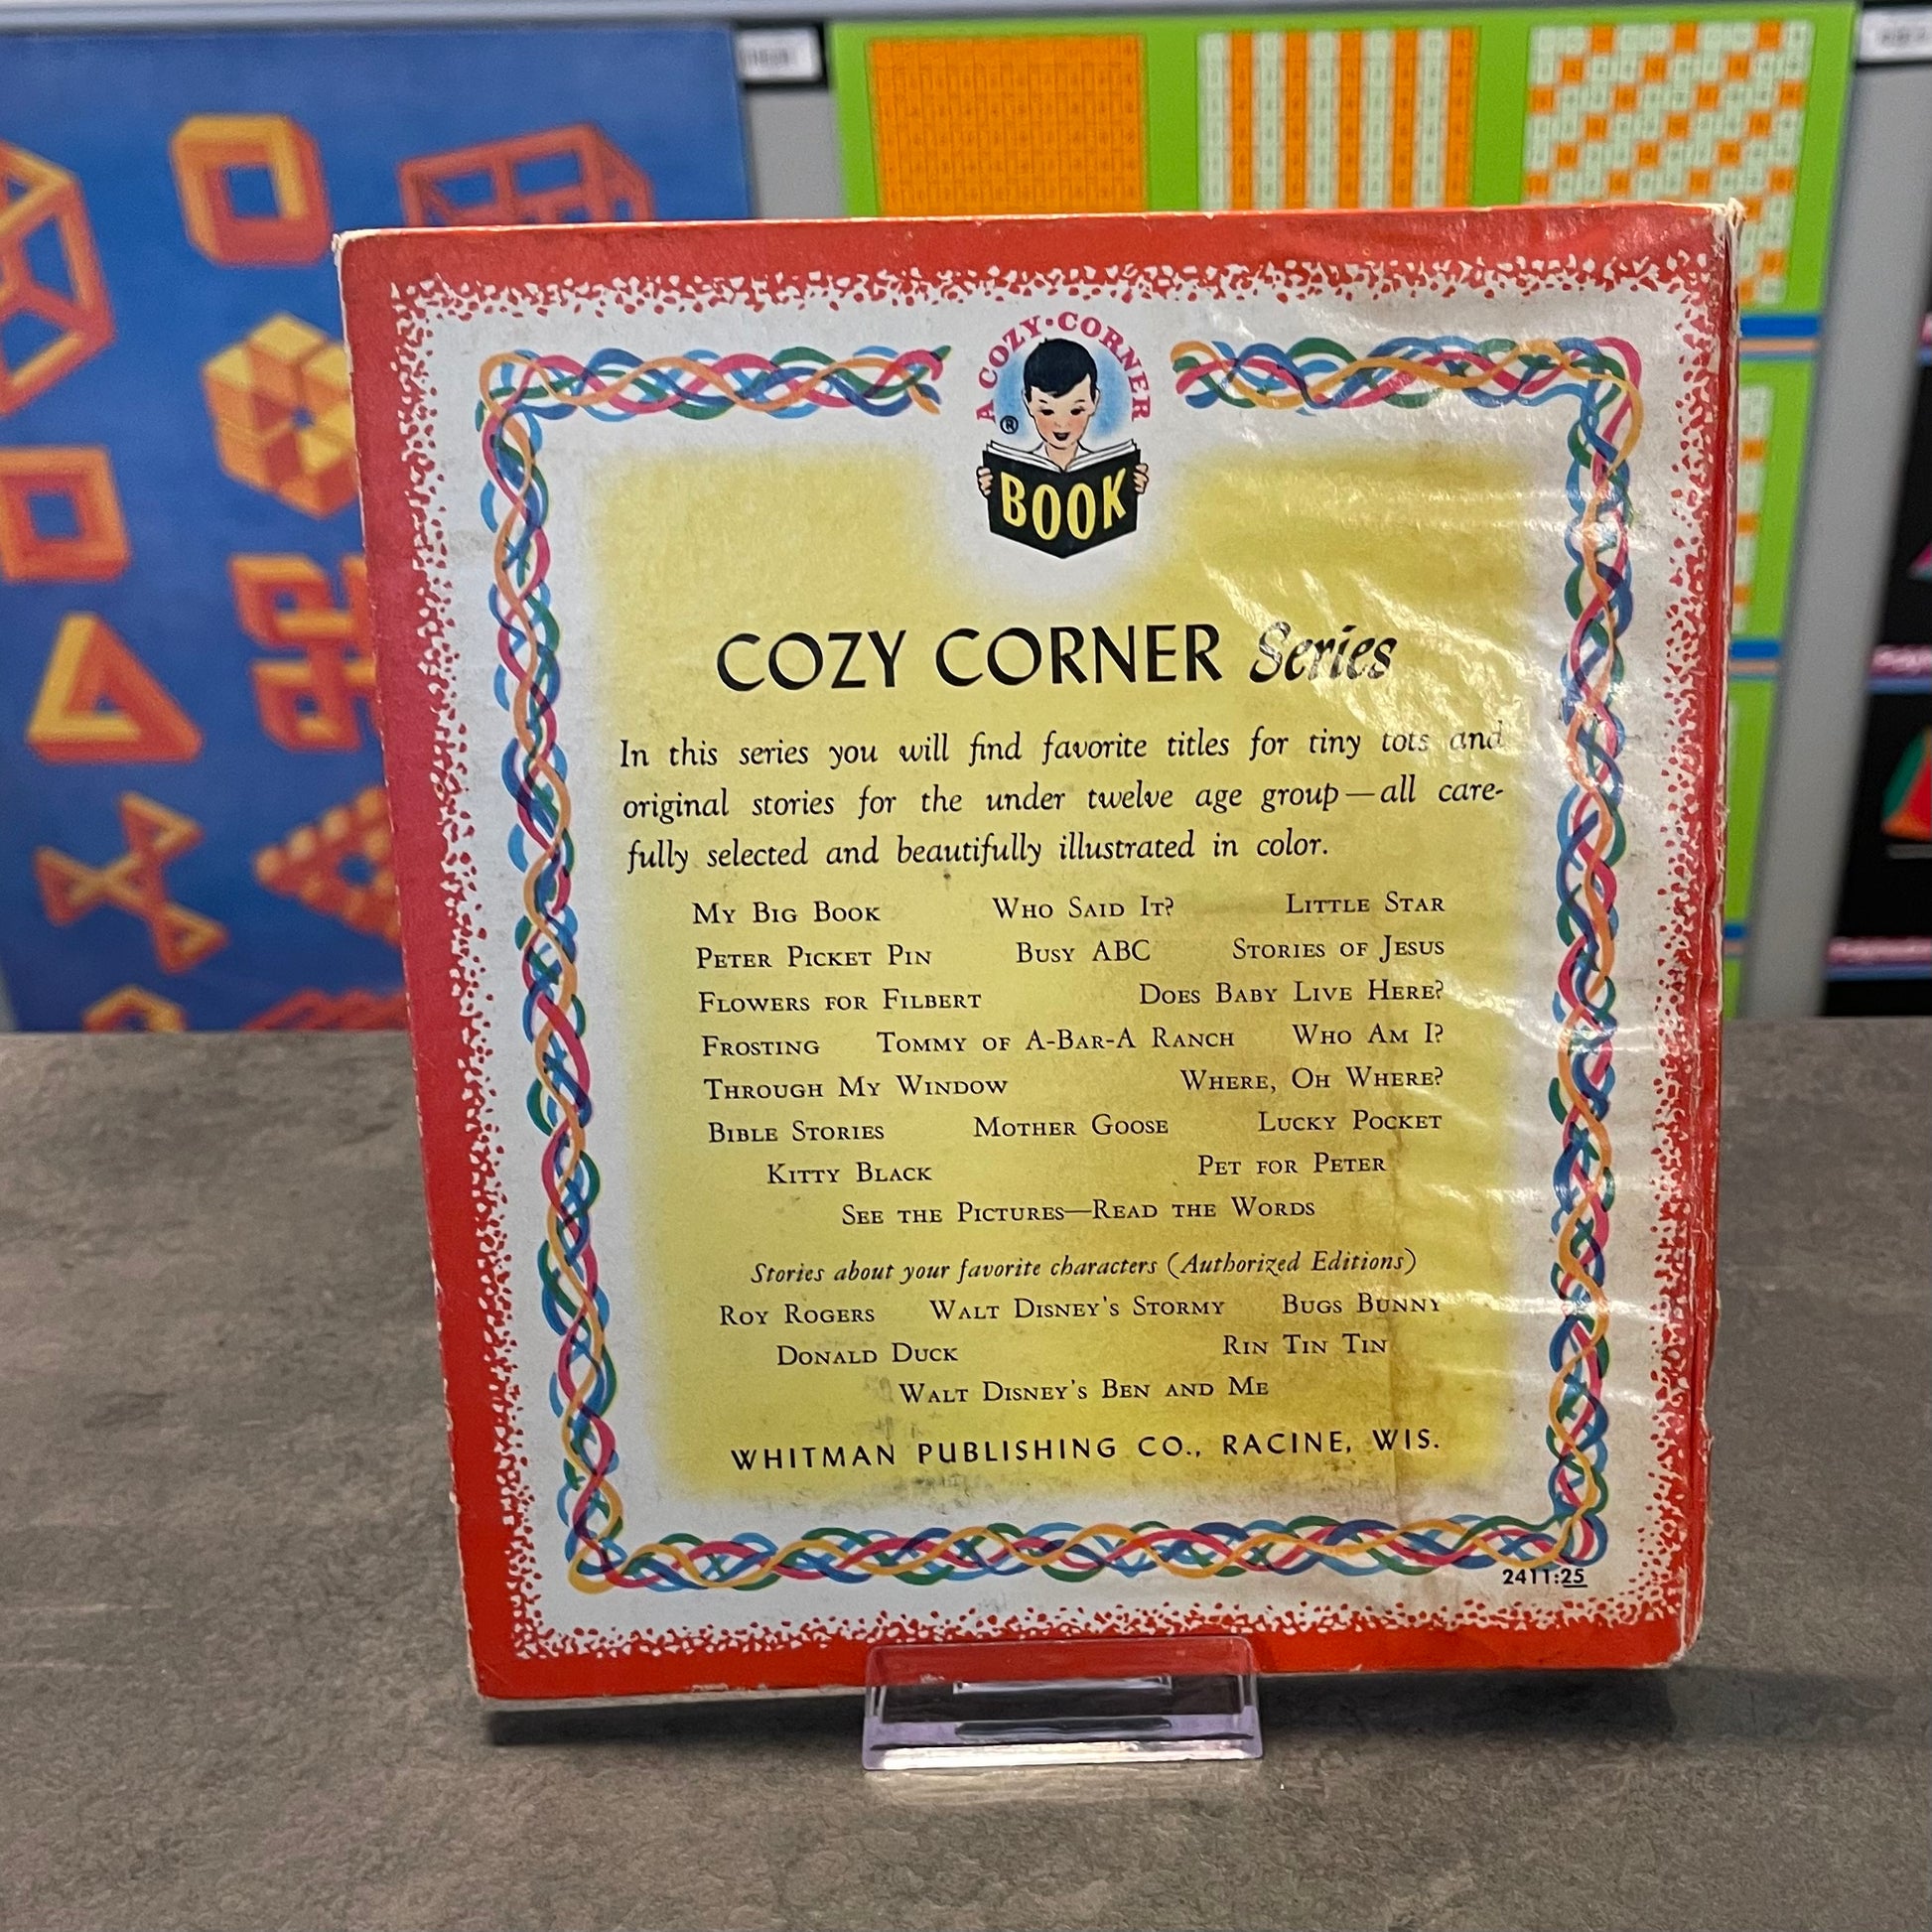 A COZY·CORNER
®
BOOK
COZY CORNER Series
In this series you will find favorite titles for tiny tots and
original stories for the under twelve age group—all care-
fully selected and beautifully illustrated in color.
My Big Book Who Said It? Little Star
Peter Picket Pin Busy ABC Stories of Jesus
Flowers for Filbert Does Baby Live Here?
Frosting Tommy of A-Bar-A Ranch Who Am I?
Through My Window Where, Oh Where?
Bible Stories Mother Goose Lucky Pocket
Kitty Black Pet for Peter
See the Pictures—Read the Words
Stories about your favorite characters (Authorized Editions)
Roy Rogers Walt Disney's Stormy Bugs Bunny
Donald Duck Rin Tin Tin
Walt Disney's Ben and Me
WHITMAN PUBLISHING CO., RACINE, WIS.
2411:25